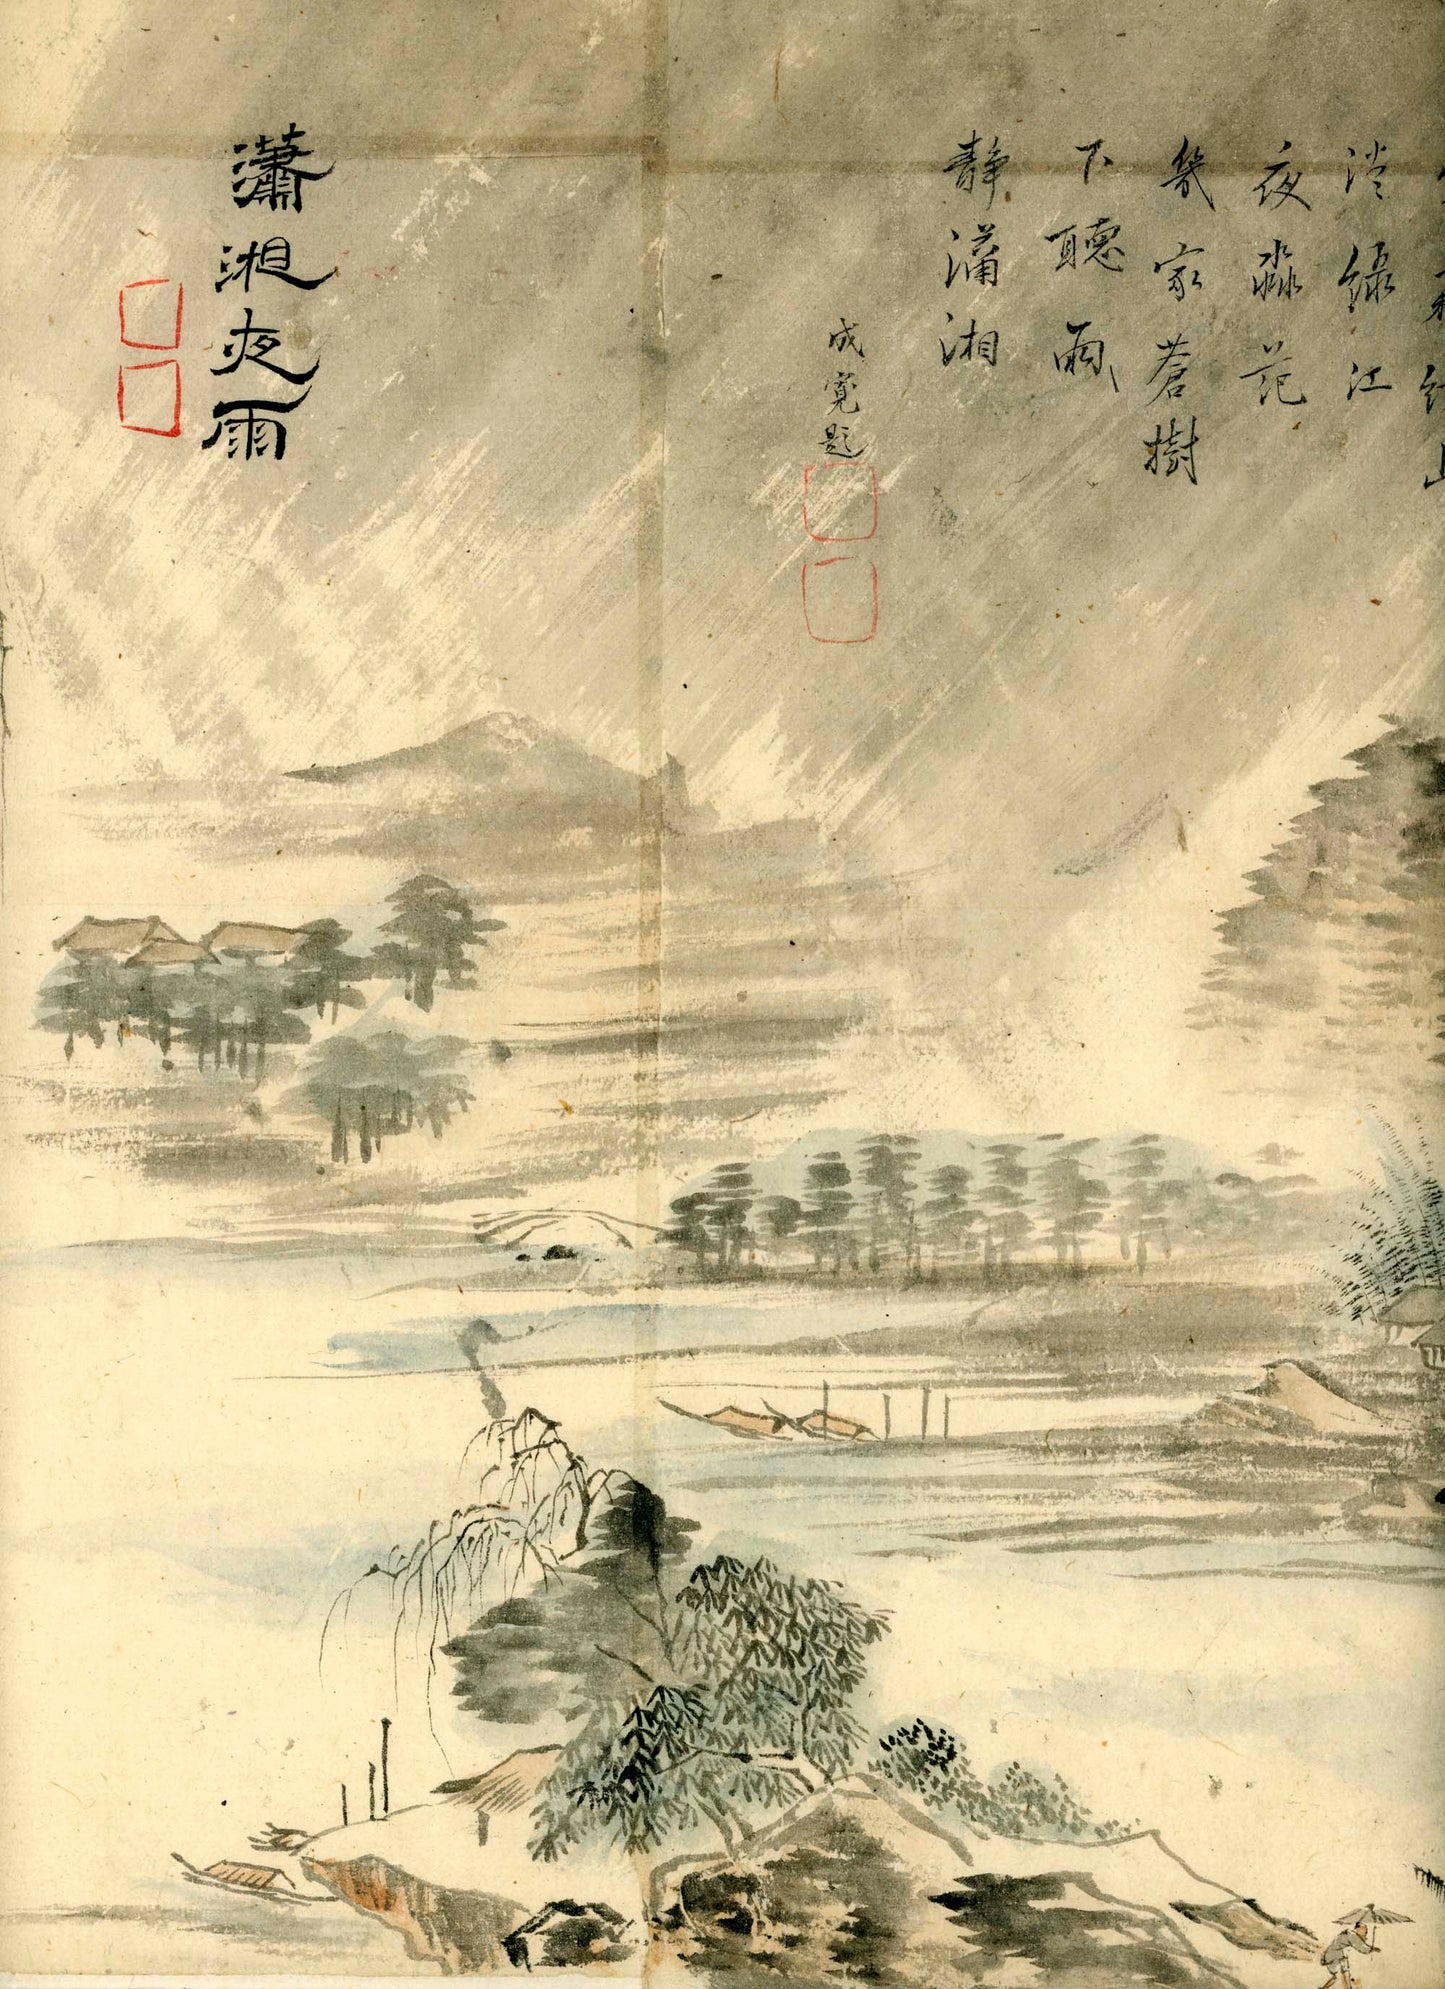 綠江
夜淼茫
幾家蒼樹
下聽雨
靜瀟湘
成寬題
瀟湘夜雨